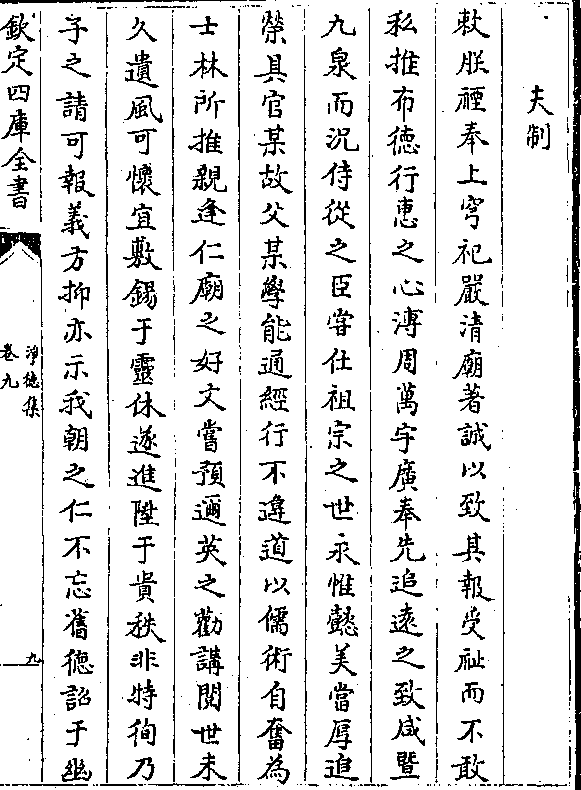 夫制
敕朕禋奉上穹祀嚴清廟著誠以致其報受祉而不敢
私推布德行惠之心溥周萬宇廣奉先追遠之致咸暨
九泉而況侍從之臣嘗仕祖宗之世永惟懿美當厚追
榮具官某故父某學能通經行不違道以儒術自奮為
士林所推親逢仁廟之好文嘗預邇英之勸講閱世未
久遺風可懷宜敷錫于靈休遂進陞于貴秩非特徇乃
子之請可報義方抑亦示我朝之仁不忘舊德詔于幽
欽定四庫全書
淨德集
卷九
九